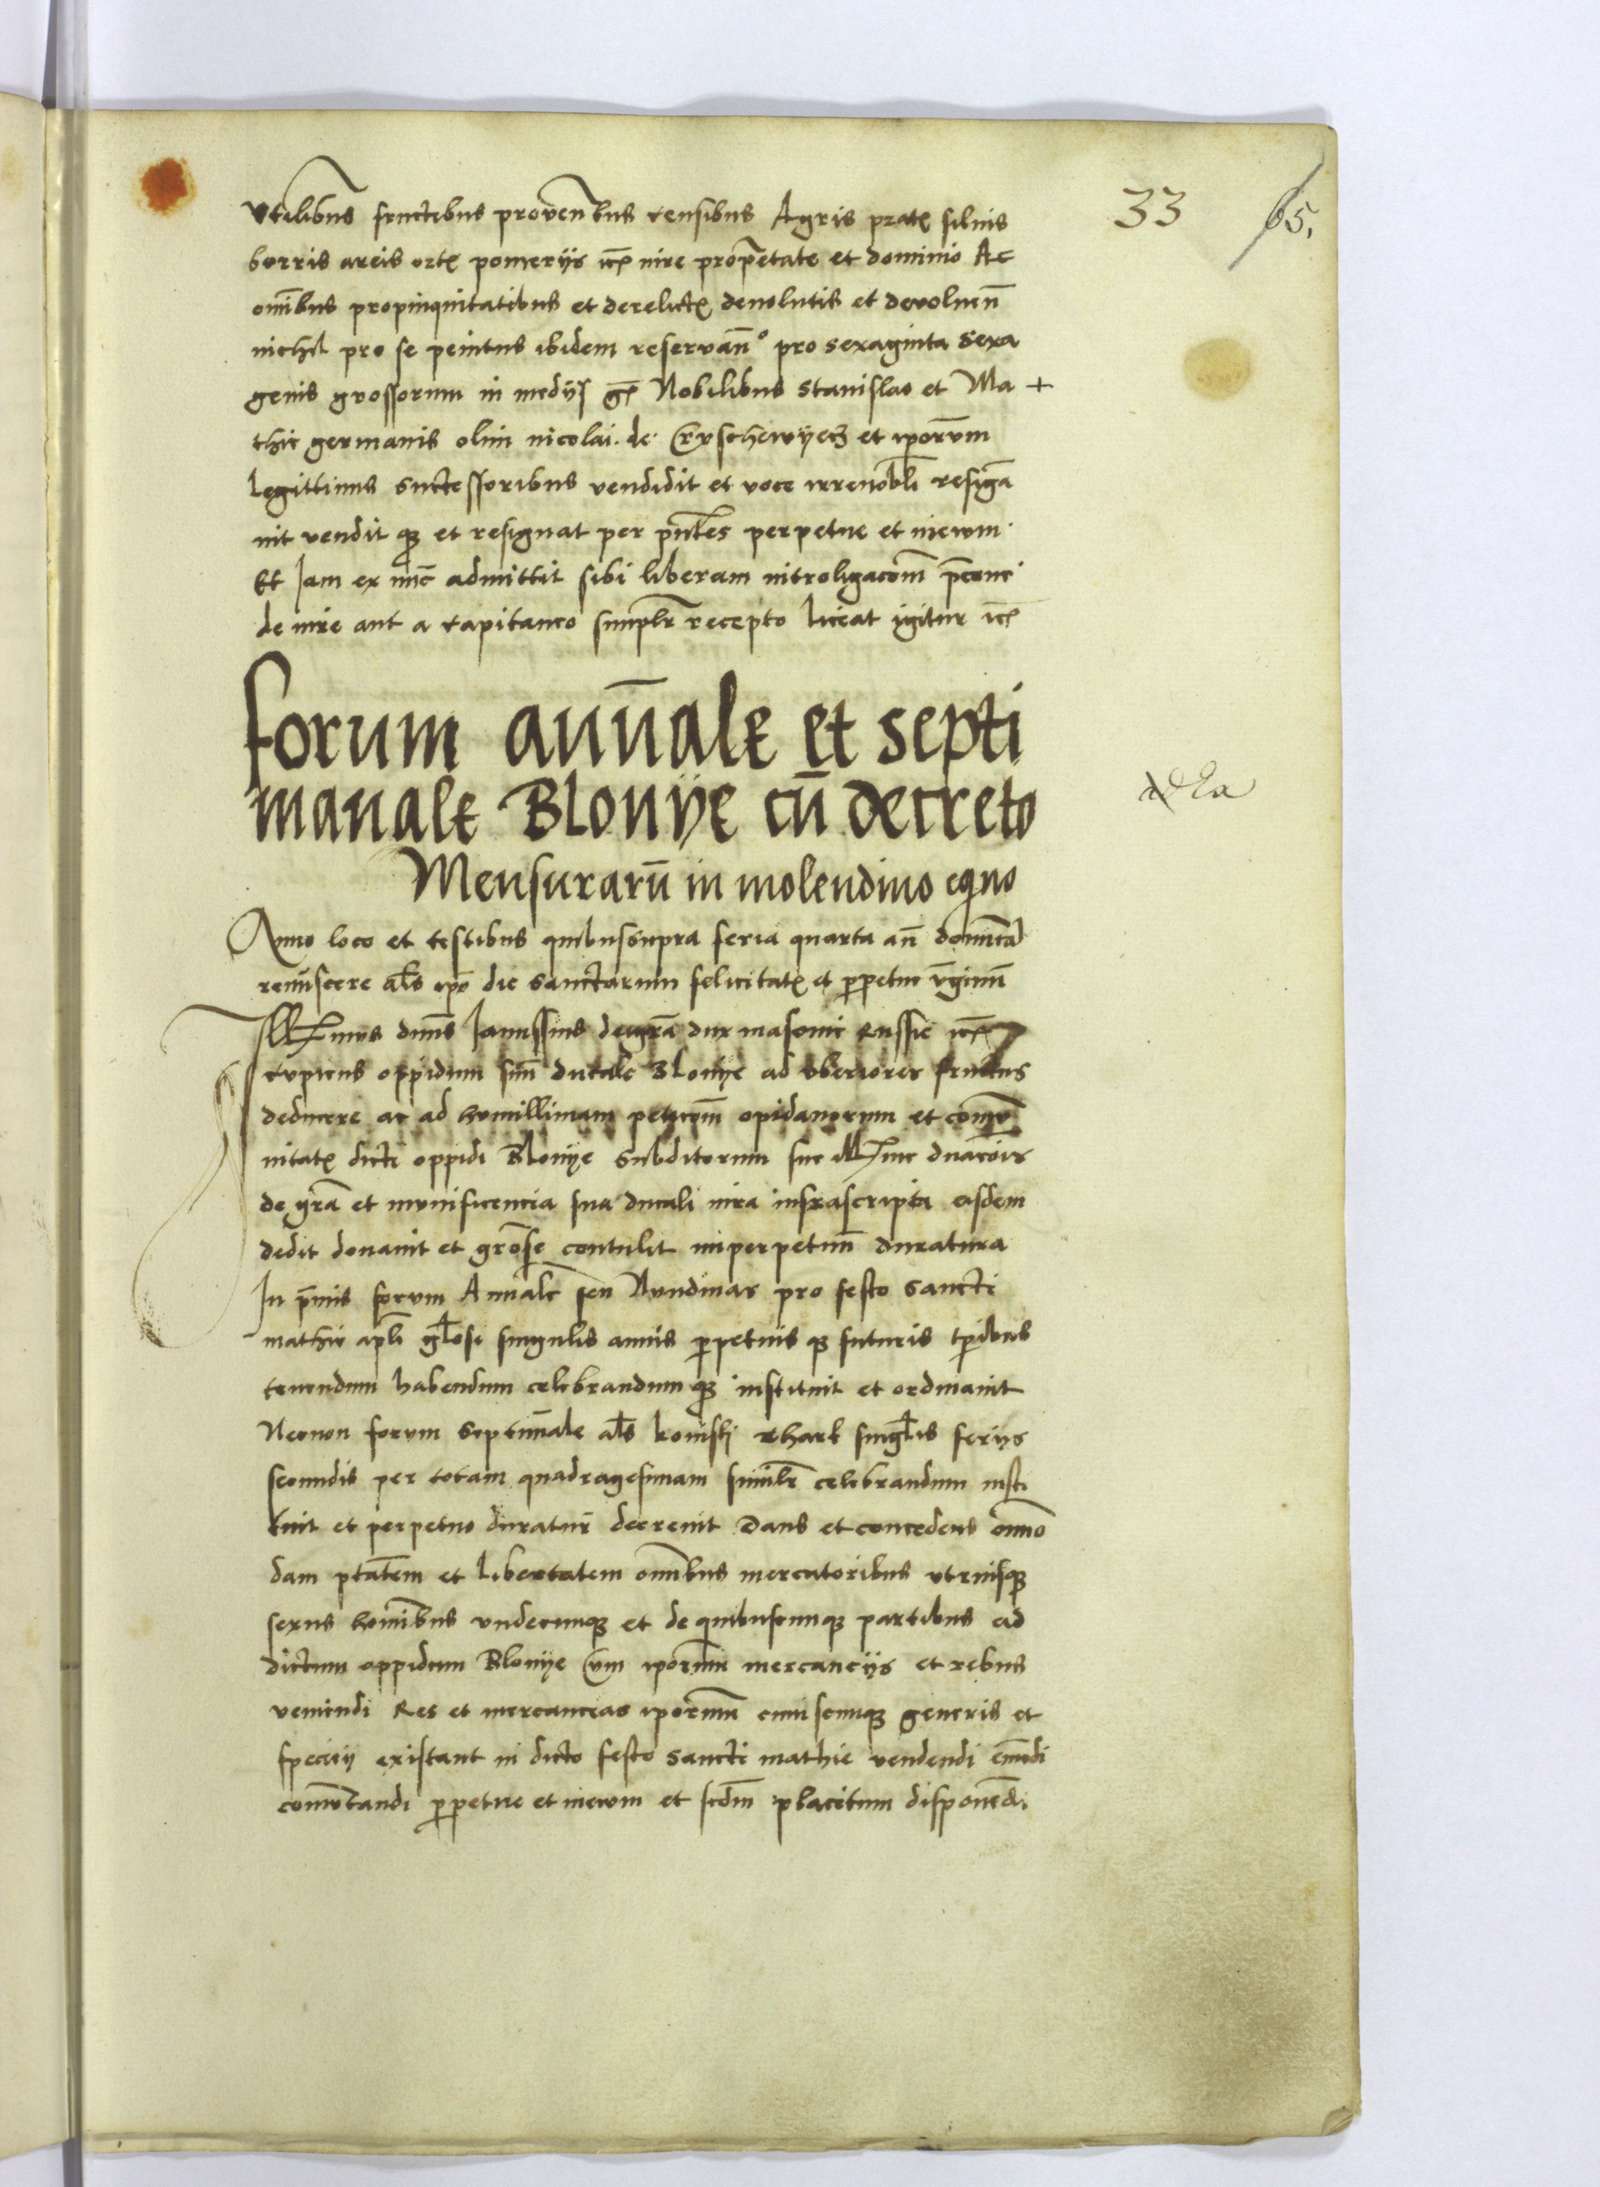 33 65.
Vtilibus fructibus proventbus censibus Agris prat silvis
borris areis ort pomeriis etc iure propetate et dominio Ac
omibus propinquitatibus et derelict devolutis et devoluen
nichil pro se penitus ibidem reservan° pro sexaginta sexa
genis grossorum in mediis g Nobilibus Stanislao et Ma +
thie germanis olim nicolai de et iporum
legittimis successoribus vendidit et voce irrenobli resigna
vit vendit que et resignat per pntes perpetue et in ewm
Et Jam ex nunc admittit sibi liberam intro ligacom
de iure aut a capitaneo simplr recepto liceat igitur etc
forum annale et septi
manale Blonye cu decreto
adEa
Mensuraru in molendino equino
Anno loco et testibus quibussupra feria quarta an dominica
reminiscere als ipo die sanctarum felicitat et perpetue vginum
Illmus dnus Janussius dei gra dux masovie Russie etc
cupiens oppidum suu ducale Blonye ad vberiores fructus
deducere ac ad humillimam peticom opidanorum et comu
nitat dicti oppidi Blonye subditorum sue Illme ducacois
de gra et munificencia sua ducali iura infrascripta eisdem
dedit donavit et grose contulit inperpetuum duratura
In pmis forum Annale seu Nundinas pro festo sancti
mathie apli glosi singulis annis perpetuis que futuris tpibus
tenendum habendum celebrandum que instituit et ordinavit
Necnon forum septimale als konski thark singlis feriis
secundis per totam quadragesimam similr celebrandum insti
tuit et perpetuo duratur decrevit Dans et concedens omno
dam ptatem et libertatem omibus mercatoribus vtriusque
sexus homibus vndecunque et de quibuscunque partibus ad
dictum oppidum Blonye cum iporum mercanciis et rebus
veniendi Res et mercancias iporum cuiuscunque generis et
speciei existant in dicto festo sancti mathie vendendi emendi
comutandi perpetue et in ewm et scdm placitum disponendi